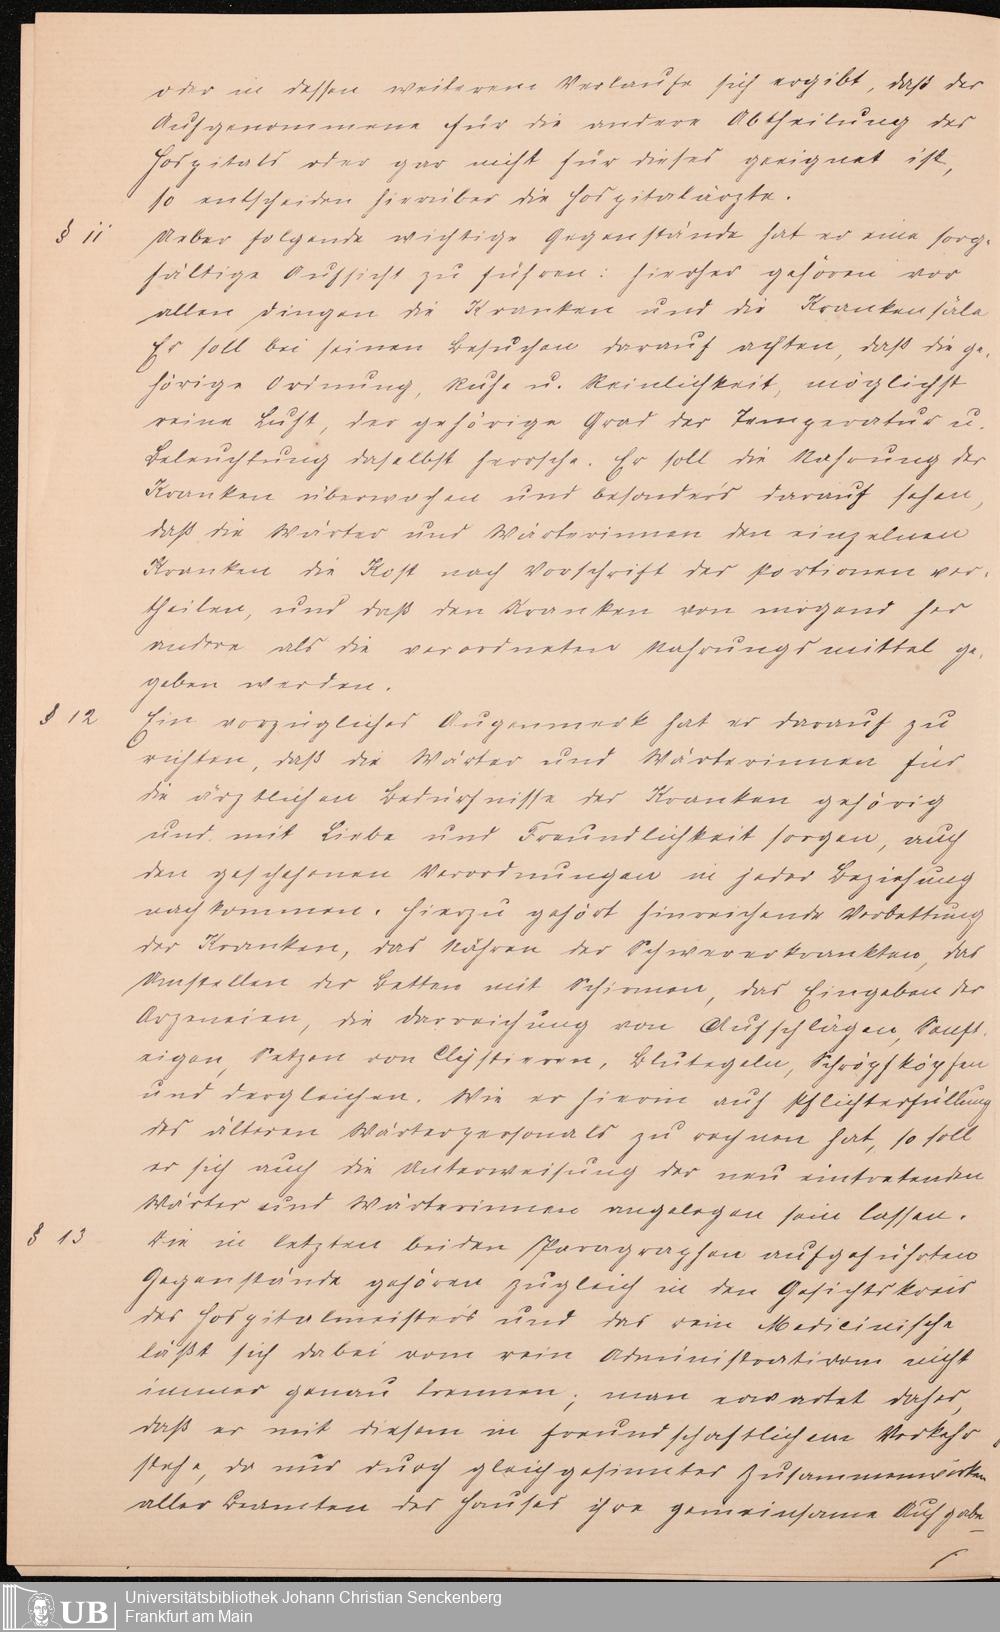 oder in dessen weiterem Verlaufe sich ergibt, daß der
Aufgenommene für die andere Abtheilung des
Hospitals oder gar nicht für dieses geeignet ist,
so entscheiden hierüber die Hospitalärzte.
§ 11 Ueber folgende wichtige Gegenstände hat er eine sorg-
fältige Aufsicht zu führen: hierher gehören vor
allen Dingen die Kranken und die Krankensäle
Er soll bei seinen Besuchen darauf achten, daß die ge-
hörige Ordnung, Ruhe u. Reinlichkeit, möglichst
reine Luft, der gehörige Grad der Temperatur u.
Beleuchtung daselbst herrsche. Er soll die Nahrung der
Kranken überwachen und besonders darauf sehen,
daß die Wärter und Wärterinnen den einzelnen
Kranken die Kost nach Vorschrift der Portionen ver-
theilen, und daß den Kranken von nirgend her
andere als die verordneten Nahrungsmittel ge-
geben werden.
§ 12 Ein vorzügliches Augenmerk hat er darauf zu
richten, daß die Wärter und Wärterinnen für
die ärztlichen Bedürfnisse der Kranken gehörig
und mit Liebe und Freundlichkeit sorgen, auch
den geschehenen Verordnungen in jeder Beziehung
nachkommen. Hierzu gehört hinreichende Verbettung
der Kranken, das Nähren der Schwererkrankten, das
Umstellen der Betten mit Schirmen, das Eingeben der
Arzeneien, die Darreichung von Aufschlägen, Senft-
eigen, Setzen von Clystieren, Blutegeln, Schröpfköpfen
und dergleichen. Wie er hierin auf Pflichterfüllung
des älteren Wärterpersonals zu rechnen hat, so soll
er sich auch die Unterweisung der neu eintretenden
Wärter und Wärterinnen angelegen sein lassen.
§ 13 Die in letzten beiden Paragraphen aufgeführten
Gegenstände gehören zugleich in den Gesichtskreis
des Hospitalmeisters und das rein Medicinische
läßt sich dabei vom rein Administrativem nicht
immer genau trennen; man erwartet daher,
daß er mit diesem in freundschaftlichem Verkehr
stehe, da nur durch gleichgesinntes Zusammenwirken
aller Beamten des Hauses ihre gemeinsame Aufgabe
Universitätsbibliothek Johann Christian Senckenberg
Frankfurt am Main
UB